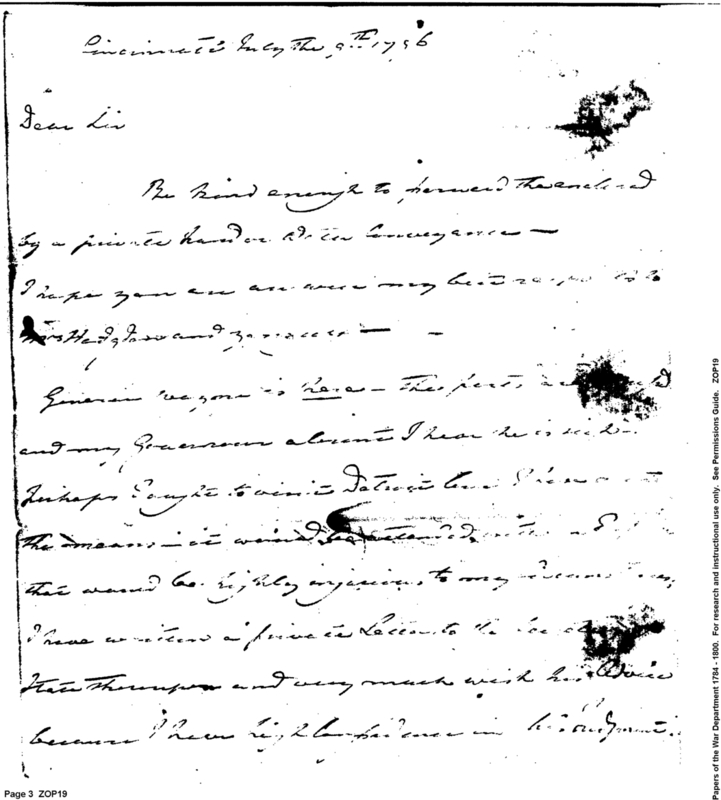 Cincinnati July the 9th 1796
Dear Sir
Be kind enough to forward the enclosed
by a private hand or other Conveyance —
I hope you are well my best respects to
Mrs and yourself —
General Wayne is here – the posts
and my Governour absent I hear he is
Perhaps I ought to visit Detroit but I have not
the means – it would be attended with
that would be highly injurious to my
I have written a private Letter to the
State thereupon and very much wish his Advice
because I have high Confidence in his Judgment
Page 3 ZOP19
Papers of the War Department 1784 - 1800. For research and instructional use only. See Permissions Guide. ZOP19